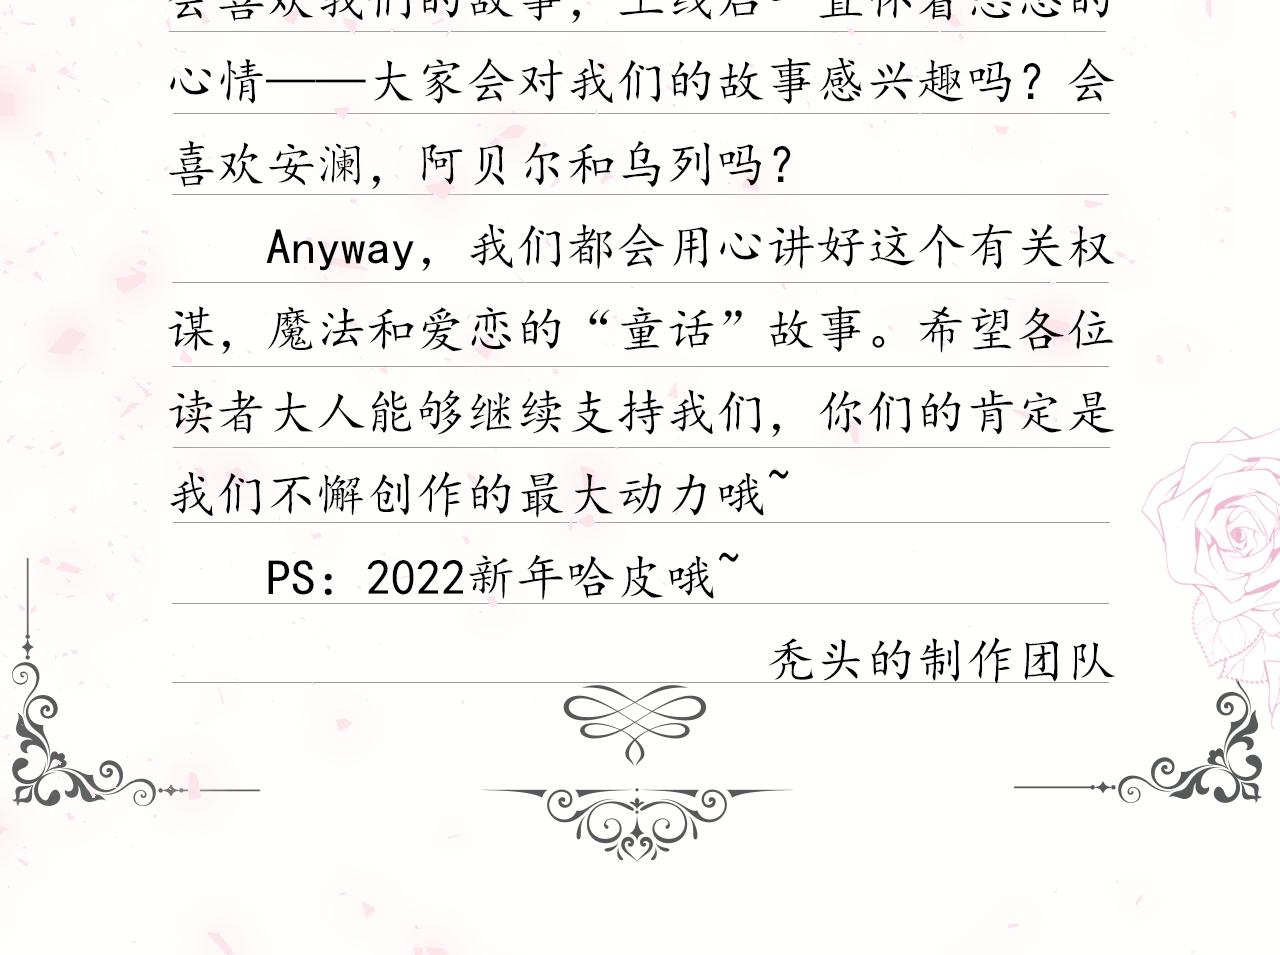 会喜欢我们的故事，上线后一直怀着忐忑的
心情——大家会对我们的故事感兴趣吗？会
喜欢安澜，阿贝尔和乌列吗？
Anyway，我们都会用心讲好这个有关权
谋，魔法和爱恋的“童话”故事。希望各位
读者大人能够继续支持我们，你们的肯定是
我们不懈创作的最大动力哦~
PS：2022新年哈皮哦~
秃头的制作团队